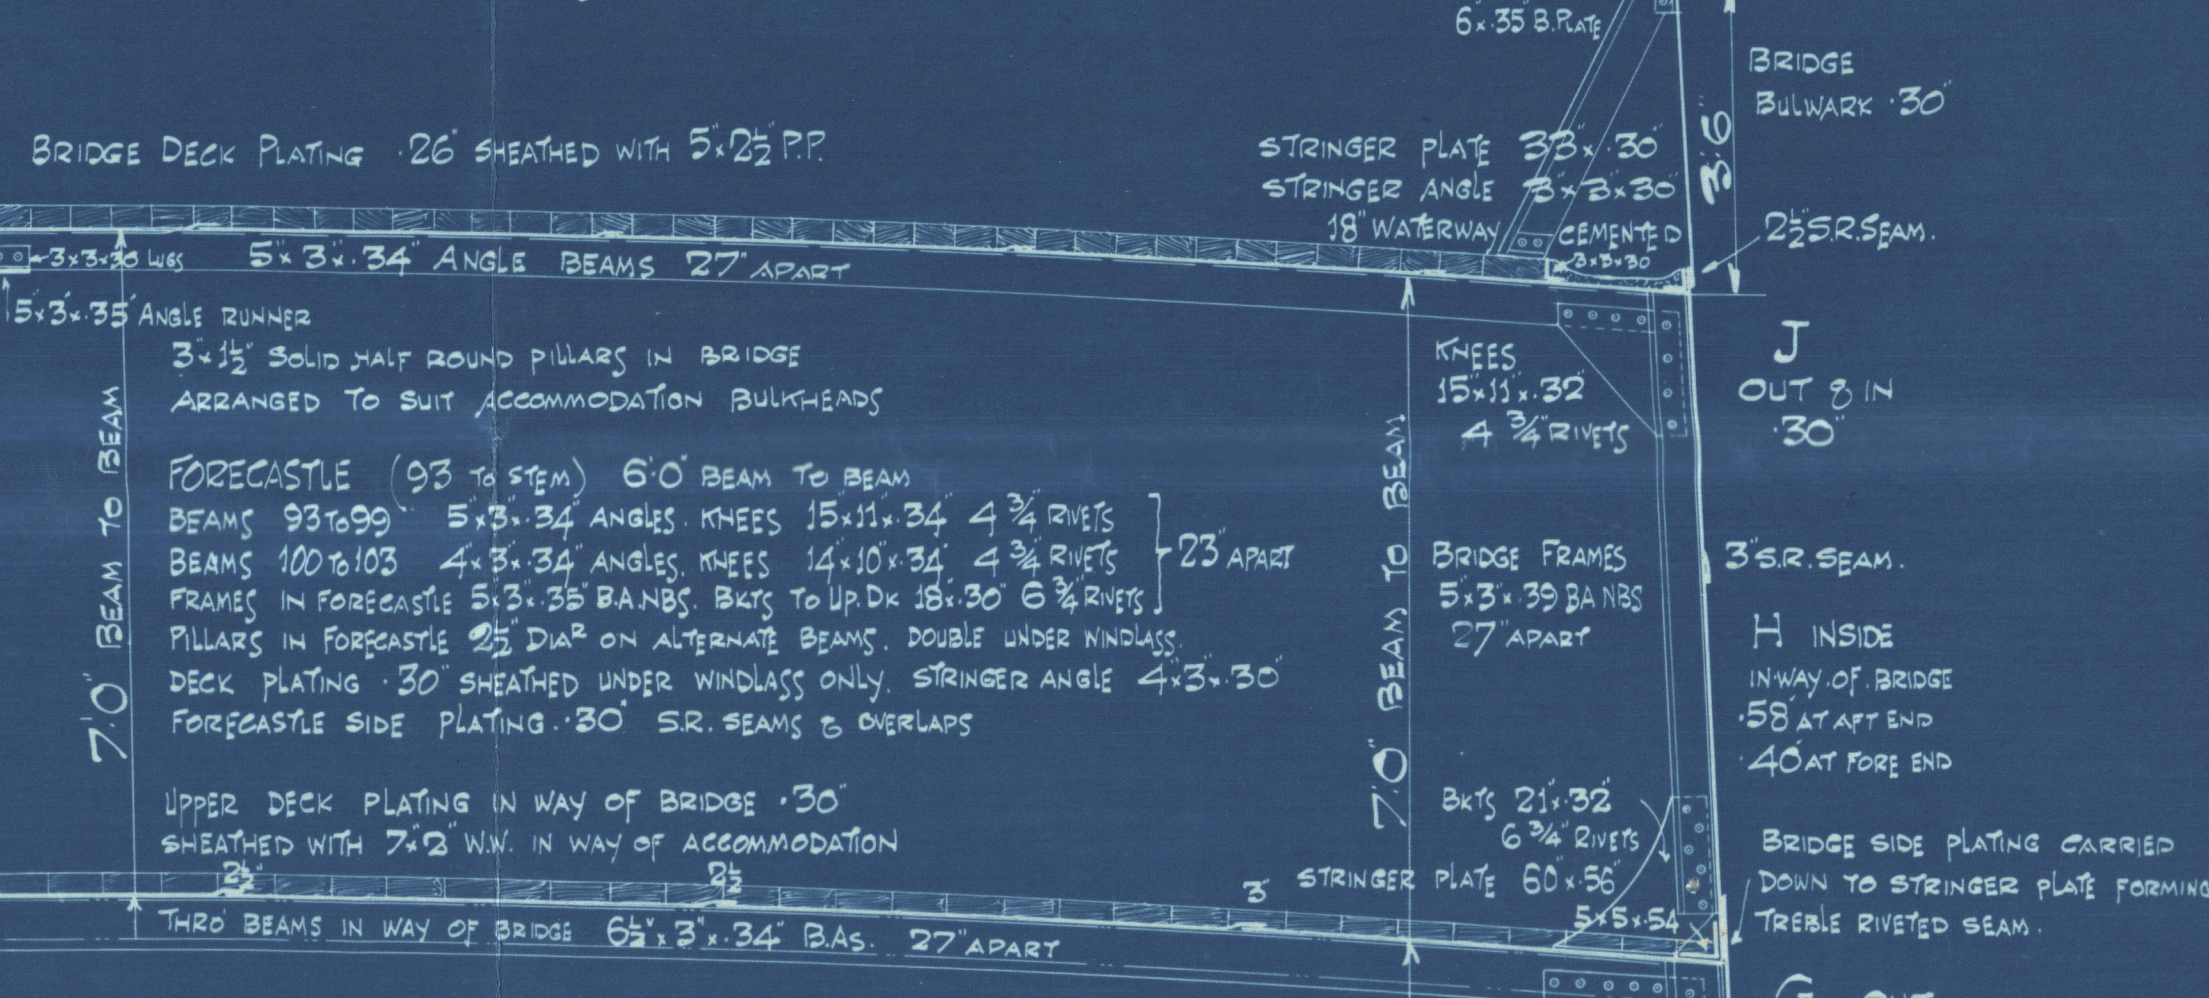 6"×·35" B.PLATE
BRIDGE
BULWARK ·30"
3'6"
BRIDGE DECK PLATING ·26" SHEATHED WITH 5"×2½" P.P.
STRINGER PLATE 33"×·30"
STRINGER ANGLE 3"×3"×30"
18" WATERWAY CEMENTED
3×3×30
2½" S.R. SEAM.
3×3×30 LUGS
5"×3"×·34" ANGLE BEAMS 27" APART
5"×3"×·35" ANGLE RUNNER
3"×1½" SOLID HALF ROUND PILLARS IN BRIDGE
ARRANGED TO SUIT ACCOMMODATION BULKHEADS
7'0" BEAM TO BEAM
FORECASTLE (93 TO STEM) 6'0" BEAM TO BEAM
BEAMS 93 TO 99 5"×3"×·34" ANGLES. KNEES 15"×11"×·34" 4 ¾" RIVETS
BEAMS 100 TO 103 4"×3"×·34" ANGLES. KNEES 14"×10"×·34" 4 ¾" RIVETS
23" APART
FRAMES IN FORECASTLE 5"×3"×·35" B.A.NBS. BKTS TO UP. DK 18"×·30" 6 ¾" RIVETS
PILLARS IN FORECASTLE 2½" DIAR ON ALTERNATE BEAMS. DOUBLE UNDER WINDLASS.
DECK PLATING ·30" SHEATHED UNDER WINDLASS ONLY. STRINGER ANGLE 4"×3"×·30"
FORECASTLE SIDE PLATING ·30" S.R. SEAMS & OVERLAPS
UPPER DECK PLATING IN WAY OF BRIDGE ·30"
SHEATHED WITH 7"×2" W.W. IN WAY OF ACCOMMODATION
2½"
2½
3"
THRO' BEAMS IN WAY OF BRIDGE 6½"×3"×·34" B.AS. 27" APART
7'0" BEAM TO BEAM
KNEES
15"×11"×·32"
4 ¾" RIVETS
BRIDGE FRAMES
5"×3"×·39 BA NBS
27" APART
BKTS 21"×·32"
6 ¾" RIVETS
STRINGER PLATE 60"×·56"
5×5×·54
J
OUT & IN
·30"
3" S.R. SEAM.
H INSIDE
IN WAY OF BRIDGE
·58" AT AFT END
·40" AT FORE END
BRIDGE SIDE PLATING CARRIED
DOWN TO STRINGER PLATE FORMING
TREBLE RIVETED SEAM.